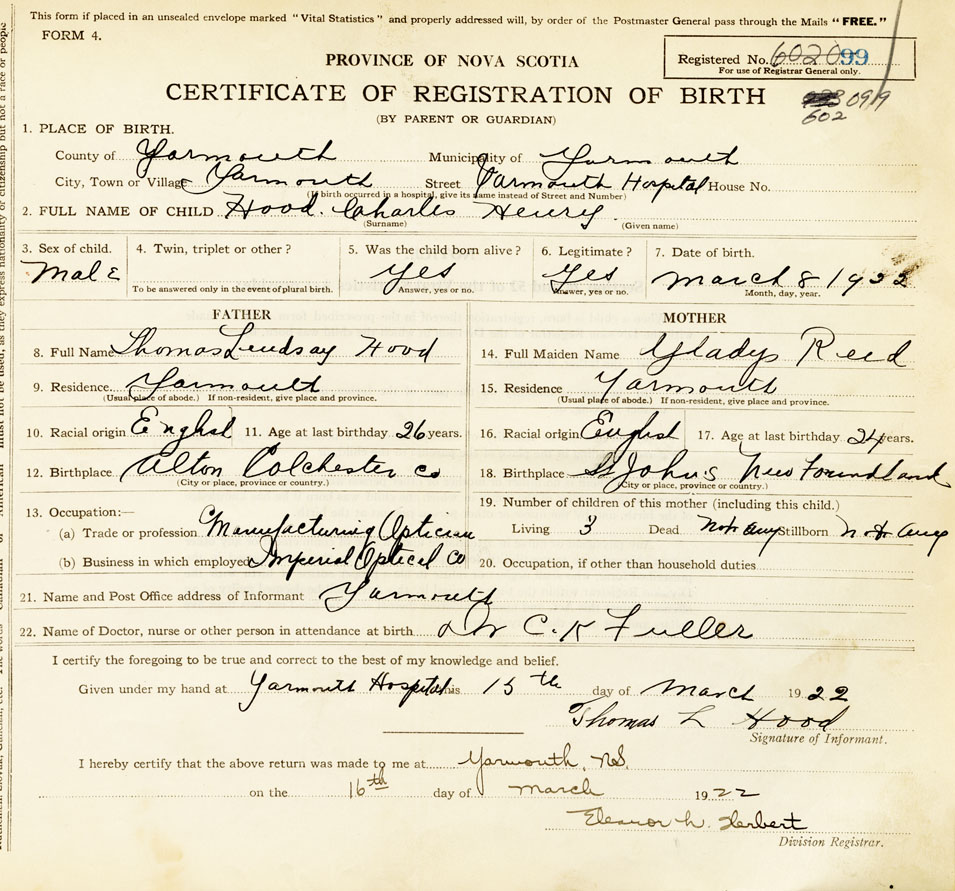 This form if placed in an unsealed envelope marked "Vital Statistics" and properly addressed will, by order of the Postmaster General pass through the Mails "FREE."
FORM 4.
Registered No. 602099
For use of Registrar General only.
PROVINCE OF NOVA SCOTIA
CERTIFICATE OF REGISTRATION OF BIRTH
(BY PARENT OR GUARDIAN)
0919
602
1. PLACE OF BIRTH.
County of Yarmouth Municipality of Yarmouth
City, Town or Village Yarmouth Street Yarmouth Hospital House No.
(If birth occurred in a hospital, give its name instead of Street and Number)
2. FULL NAME OF CHILD Hood. Charles Henry.
(Surname) (Given name)
3. Sex of child. 4. Twin, triplet or other? 5. Was the child born alive? 6. Legitimate? 7. Date of birth.
Male Yes Yes March 8 1922
To be answered only in the event of plural birth. Answer, yes or no. Answer, yes or no. Month, day, year.
FATHER MOTHER
8. Full Name Thomas Lindsay Hood 14. Full Maiden Name Gladys Reid
9. Residence. Yarmouth 15. Residence Yarmouth
(Usual place of abode.) If non-resident, give place and province. (Usual place of abode.) If non-resident, give place and province.
10. Racial origin English 11. Age at last birthday 26 years. 16. Racial origin English 17. Age at last birthday 24 years.
12. Birthplace Alton Colchester Co 18. Birthplace St John's New Foundland
(City or place, province or country.) (City or place, province or country.)
13. Occupation:— 19. Number of children of this mother (including this child.)
(a) Trade or profession Manufacturing Optician Living 3 Dead Not any Stillborn Not any
(b) Business in which employed Imperial Optical Co 20. Occupation, if other than household duties
21. Name and Post Office address of Informant Yarmouth
22. Name of Doctor, nurse or other person in attendance at birth Dr C. K Fuller
I certify the foregoing to be true and correct to the best of my knowledge and belief.
Given under my hand at Yarmouth Hospital this 15th day of March 1922
Thomas L Hood
Signature of Informant.
I hereby certify that the above return was made to me at Yarmouth, N.S.
on the 16th day of March 1922
Eleanor W. Herbert
Division Registrar.